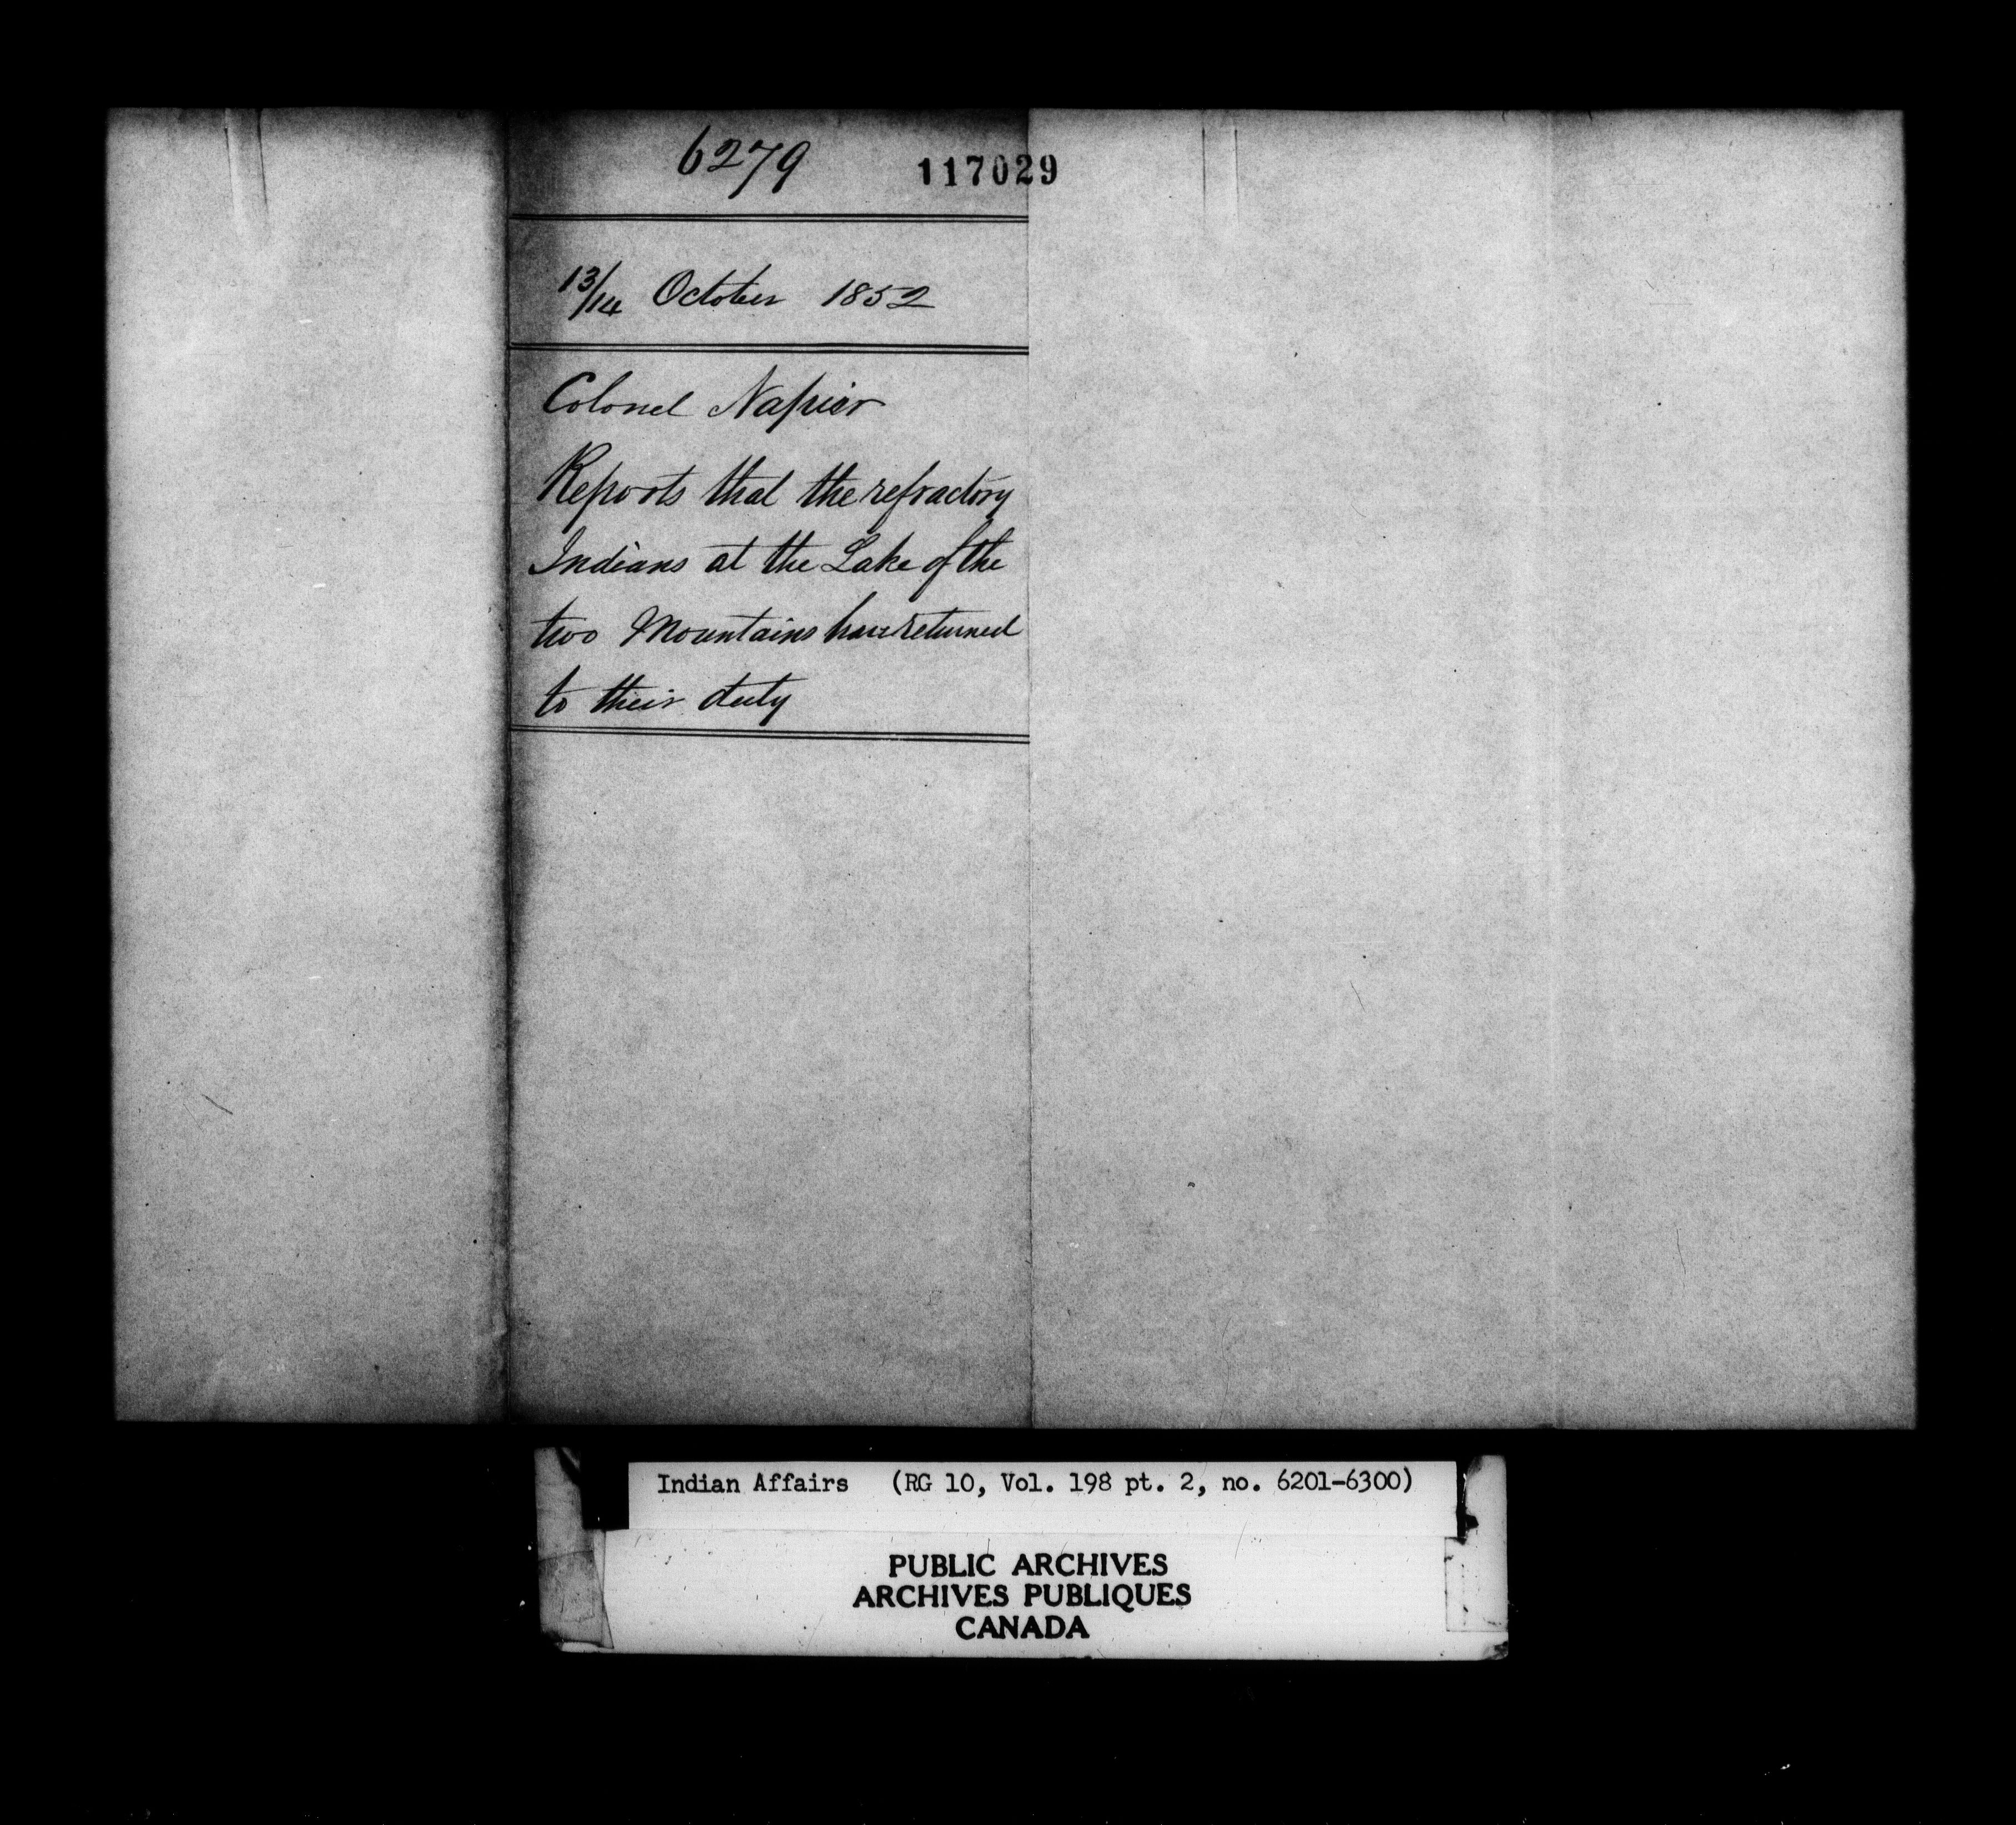 6279
117029
13/14 October 1852
Colonel Napier
Reports that the refractory
Indians at the Lake of the
two Mountains have returned
to their duty
Indian Affairs (RG 10, Vol. 198 pt. 2, no. 6201-6300)
PUBLIC ARCHIVES
ARCHIVES PUBLIQUES
CANADA